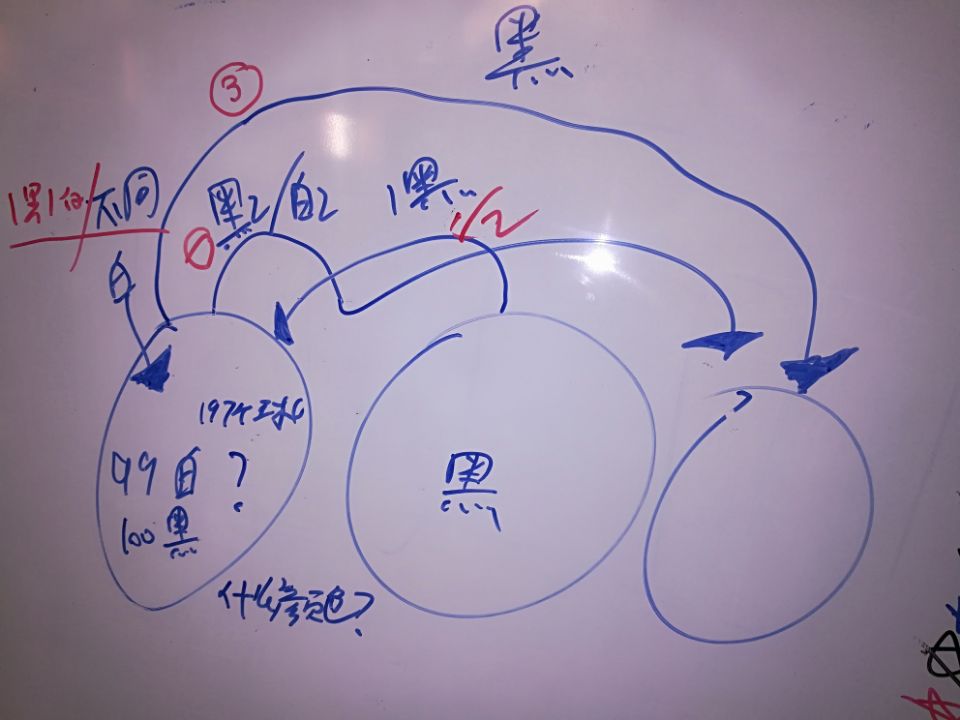 黑
③
1黑1白/不同
黑2/白2
1黑
1/2
①
白
197次
99白?
100黑
黑
什么颜色?